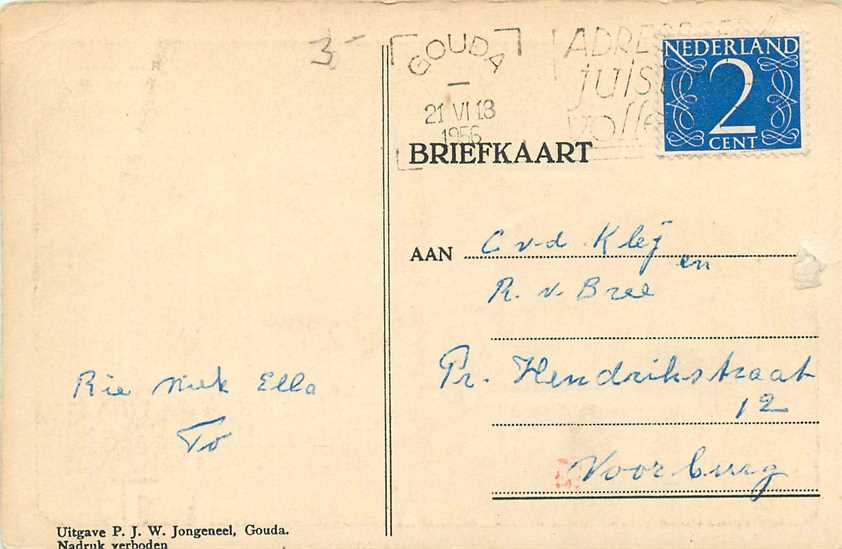 3,-
GOUDA
21 VI 18
1956
juis
volle
NEDERLAND
2
CENT
BRIEFKAART
AAN C v.d. Kleÿ
en
R. v. Bree
Pr. Hendrikstraat
12
Voorburg
Rie Niek Ella
To
Uitgave P. J. W. Jongeneel, Gouda.
Nadruk verboden